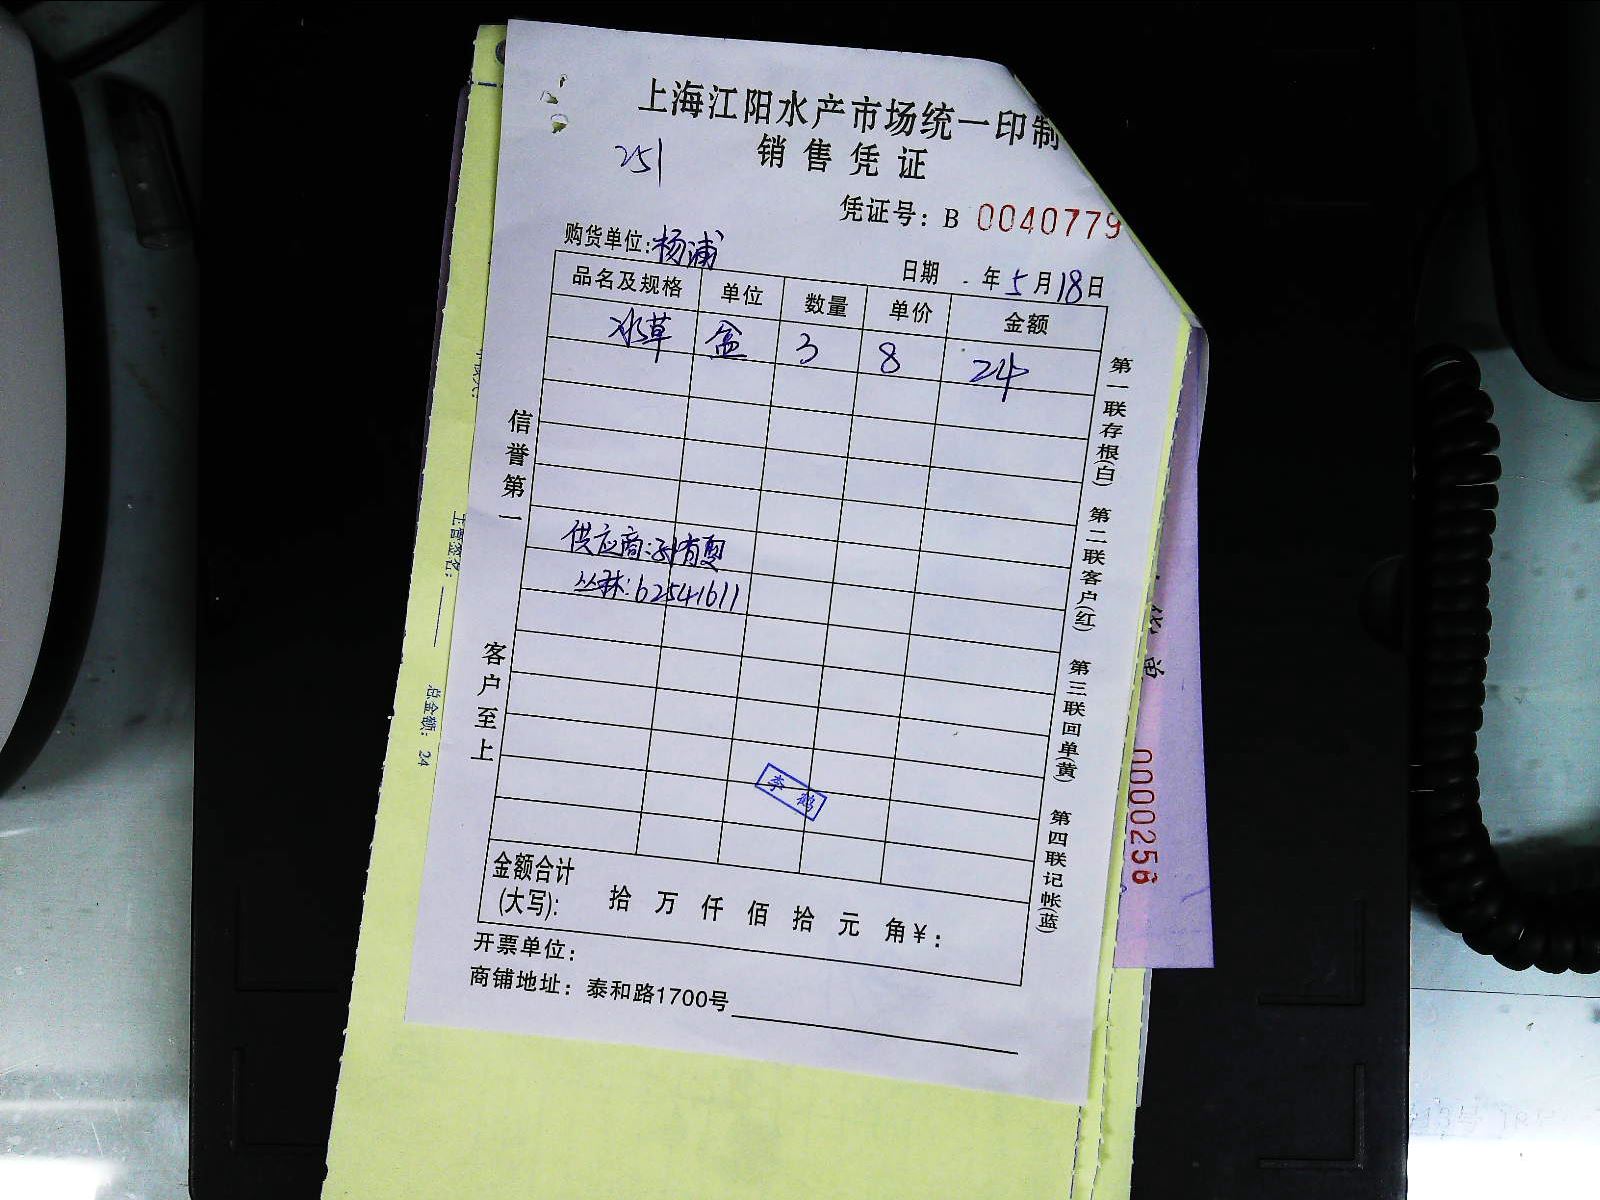 上海江阳水产市场统一印制
销售凭证
251
凭证号: B 0040779
购货单位: 杨浦
日期 年 5 月 18 日
品名及规格 单位 数量 单价 金额
水草 盒 3 8 24
供应商:
丛林: 62541611
信誉第一
客户至上
第一联存根(白) 第二联客户(红) 第三联回单(黄) 第四联记帐(蓝)
金额合计
(大写): 拾 万 仟 佰 拾 元 角 ¥:
开票单位:
商铺地址: 泰和路1700号
主管签名:
总金额: 24
0000256